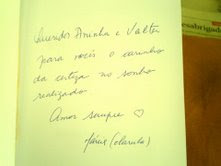 Queridos Aninha e Valter
para vocês o carinho
da certeza no sonho
realizado
Amor sempre ♡
(clarinha)
desabrigados